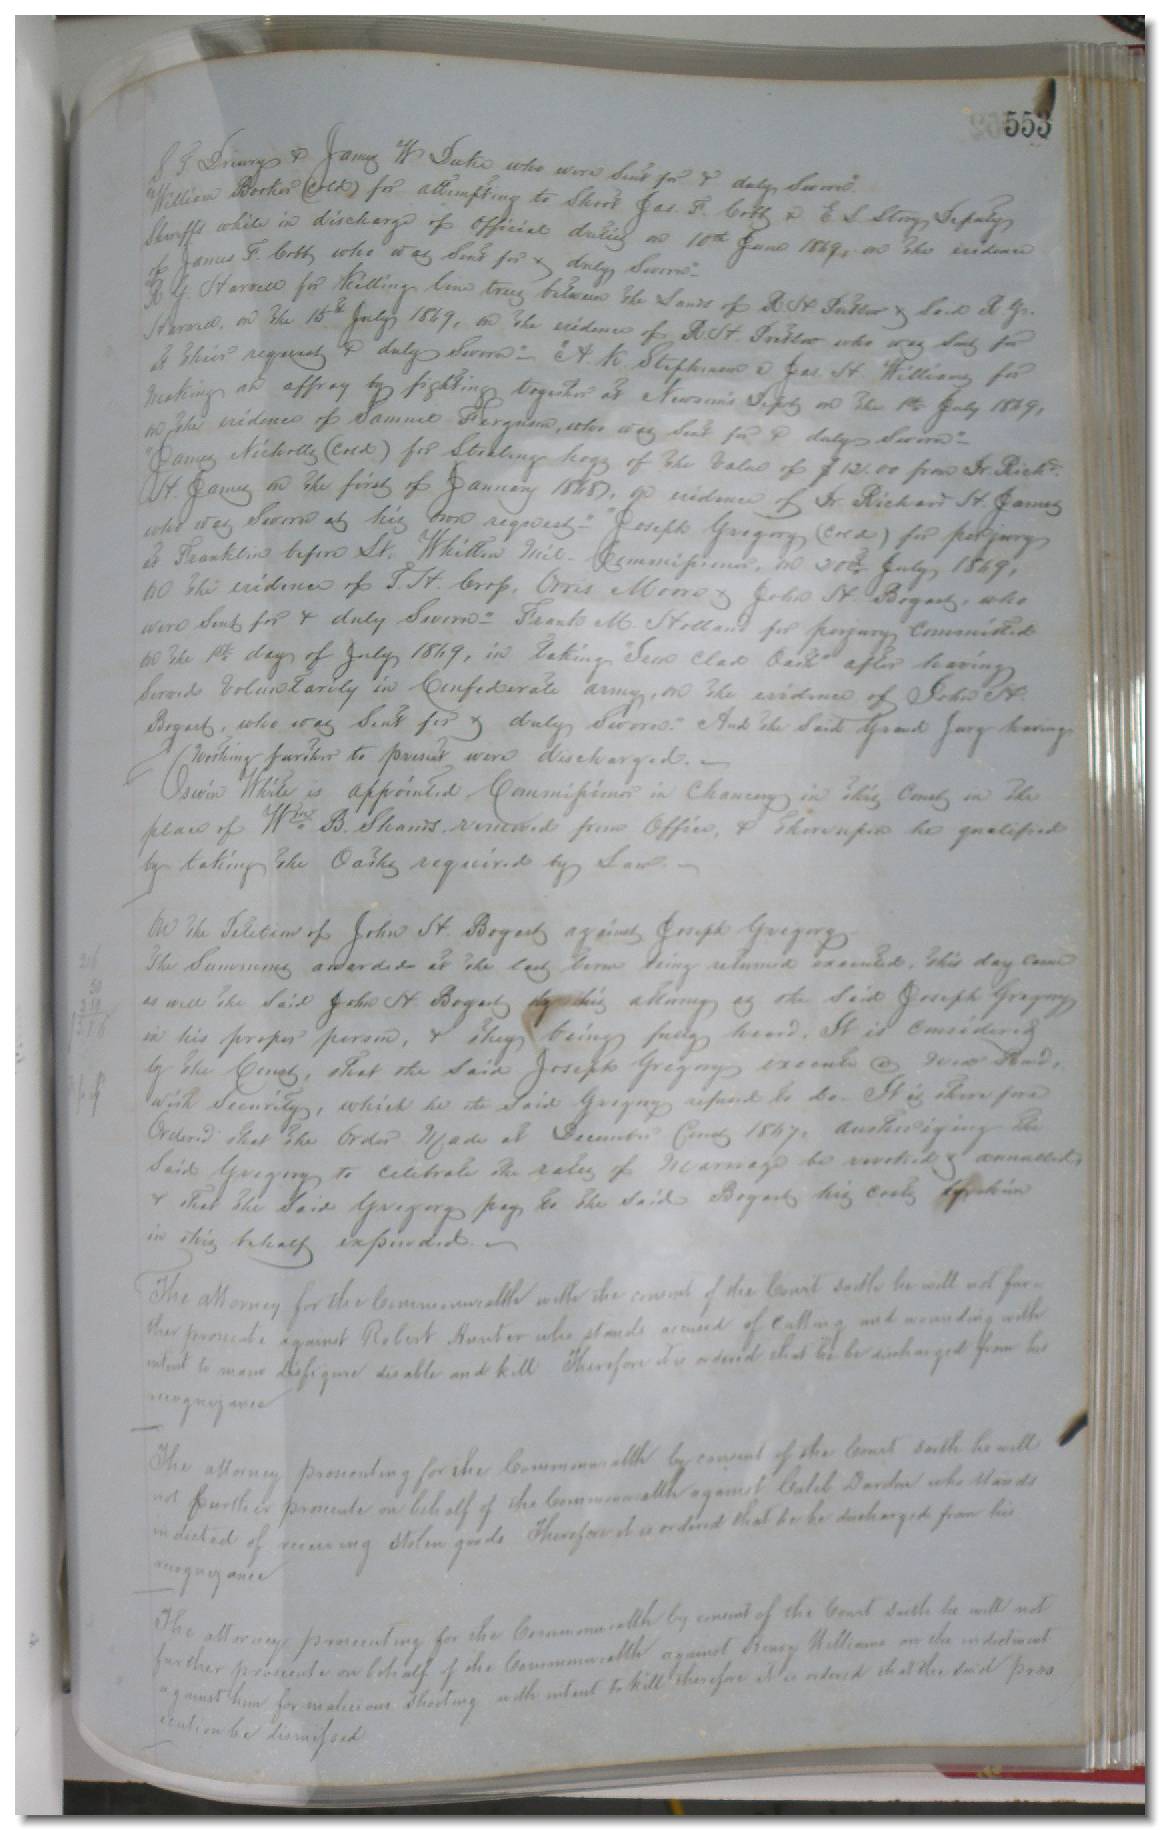 553
S F Drewry & James W Duke who were Sent for & duly Sworn"
"William Booker (Cold) for attempting to Shoot Jas. F. Cobb & E S Story Deputy
Sheriffs while in discharge of Official duties on 10th June 1869, on the evidence
of James F. Cobb who was Sent for & duly Sworn"
"R G. Harrell for Killing line trees between the Lands of R. H. & Said R G.
on the 15th July 1869, on the evidence of R. H. who was Sent for
at their request & duly Sworn" "A. K. Stephenson & Jas. H. Williams for
making an affray by fighting together at Newsom's Depot on the 1st July 1869,
on the evidence of Samuel Ferguson, who was Sent for & duly Sworn"
"James Nicholls (Cold) for Stealing hogs of the Value of $12.00 from Dr. Richd.
H. James on the first of January 1868, on evidence of Dr Richard H. James
who was Sworn at his own request" "Joseph Gregory (Cold) for perjury
at Franklin before Lt. Whitten Mil. Commissioner, on 20th July 1869,
on the evidence of T. H. Crop, Orris Moore & John H. Bogart, who
were Sent for & duly Sworn" Frank M. Holland for perjury committed
on the 1st day of July 1869, in taking "Iron Clad Oath" after having
Served Voluntarily in Confederate army, on the evidence of John H.
Bogart, who was Sent for & duly Sworn" And the Said Grand Jury having
Nothing further to present were discharged.
Oswin White is appointed Commissioner in Chancery in this County in the
place of Wm B. Shands removed from Office, & thereupon he qualified
by taking the Oaths required by Law.
On the Petition of John H. Bogart against Joseph Gregory
The Summons awarded at the last term being returned executed, this day came
as well the Said John H Bogart by his attorney as the Said Joseph Gregory
in his proper person, & they being fully heard, It is considered
by the Court, that the Said Joseph Gregory execute a new Bond,
with Security, which he the Said Gregory refused to do. It is therefore
Ordered that the Order Made at December Court 1867, authorizing the
Said Gregory to celebrate the rites of Marriage be revoked & annulled,
& that the Said Gregory pay to the Said Bogart his costs
in this behalf expended.
The attorney for the Commonwealth with the consent of the Court saith he will not fur=
ther prosecute against Robert Hunter who stands accused of cutting and wounding with
intent to maim disfigure disable and kill Therefore it is ordered that he be discharged from his
recognizance
The attorney prosecuting for the Commonwealth by consent of the Court saith he will
not further prosecute on behalf of the Commonwealth against Caleb Darden who stands
indicted of receiving stolen goods Therefore it is ordered that he be discharged from his
recognizance
The attorney prosecuting for the Commonwealth by consent of the Court saith he will not
further prosecute on behalf of the Commonwealth against Henry Williams on the indictment
against him for malicious shooting with intent to kill therefore it is ordered that the said pros
ecution be dismissed